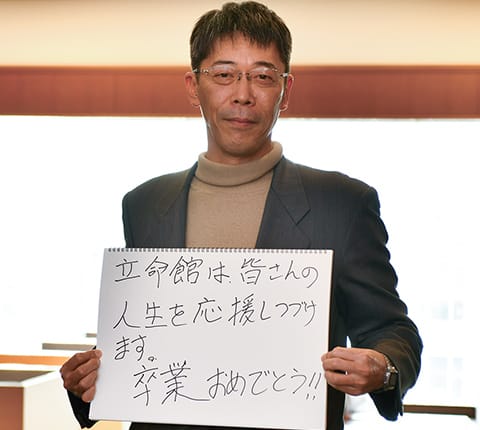 立命館は、皆さんの
人生を応援しつづけ
ます。
卒業 おめでとう!!